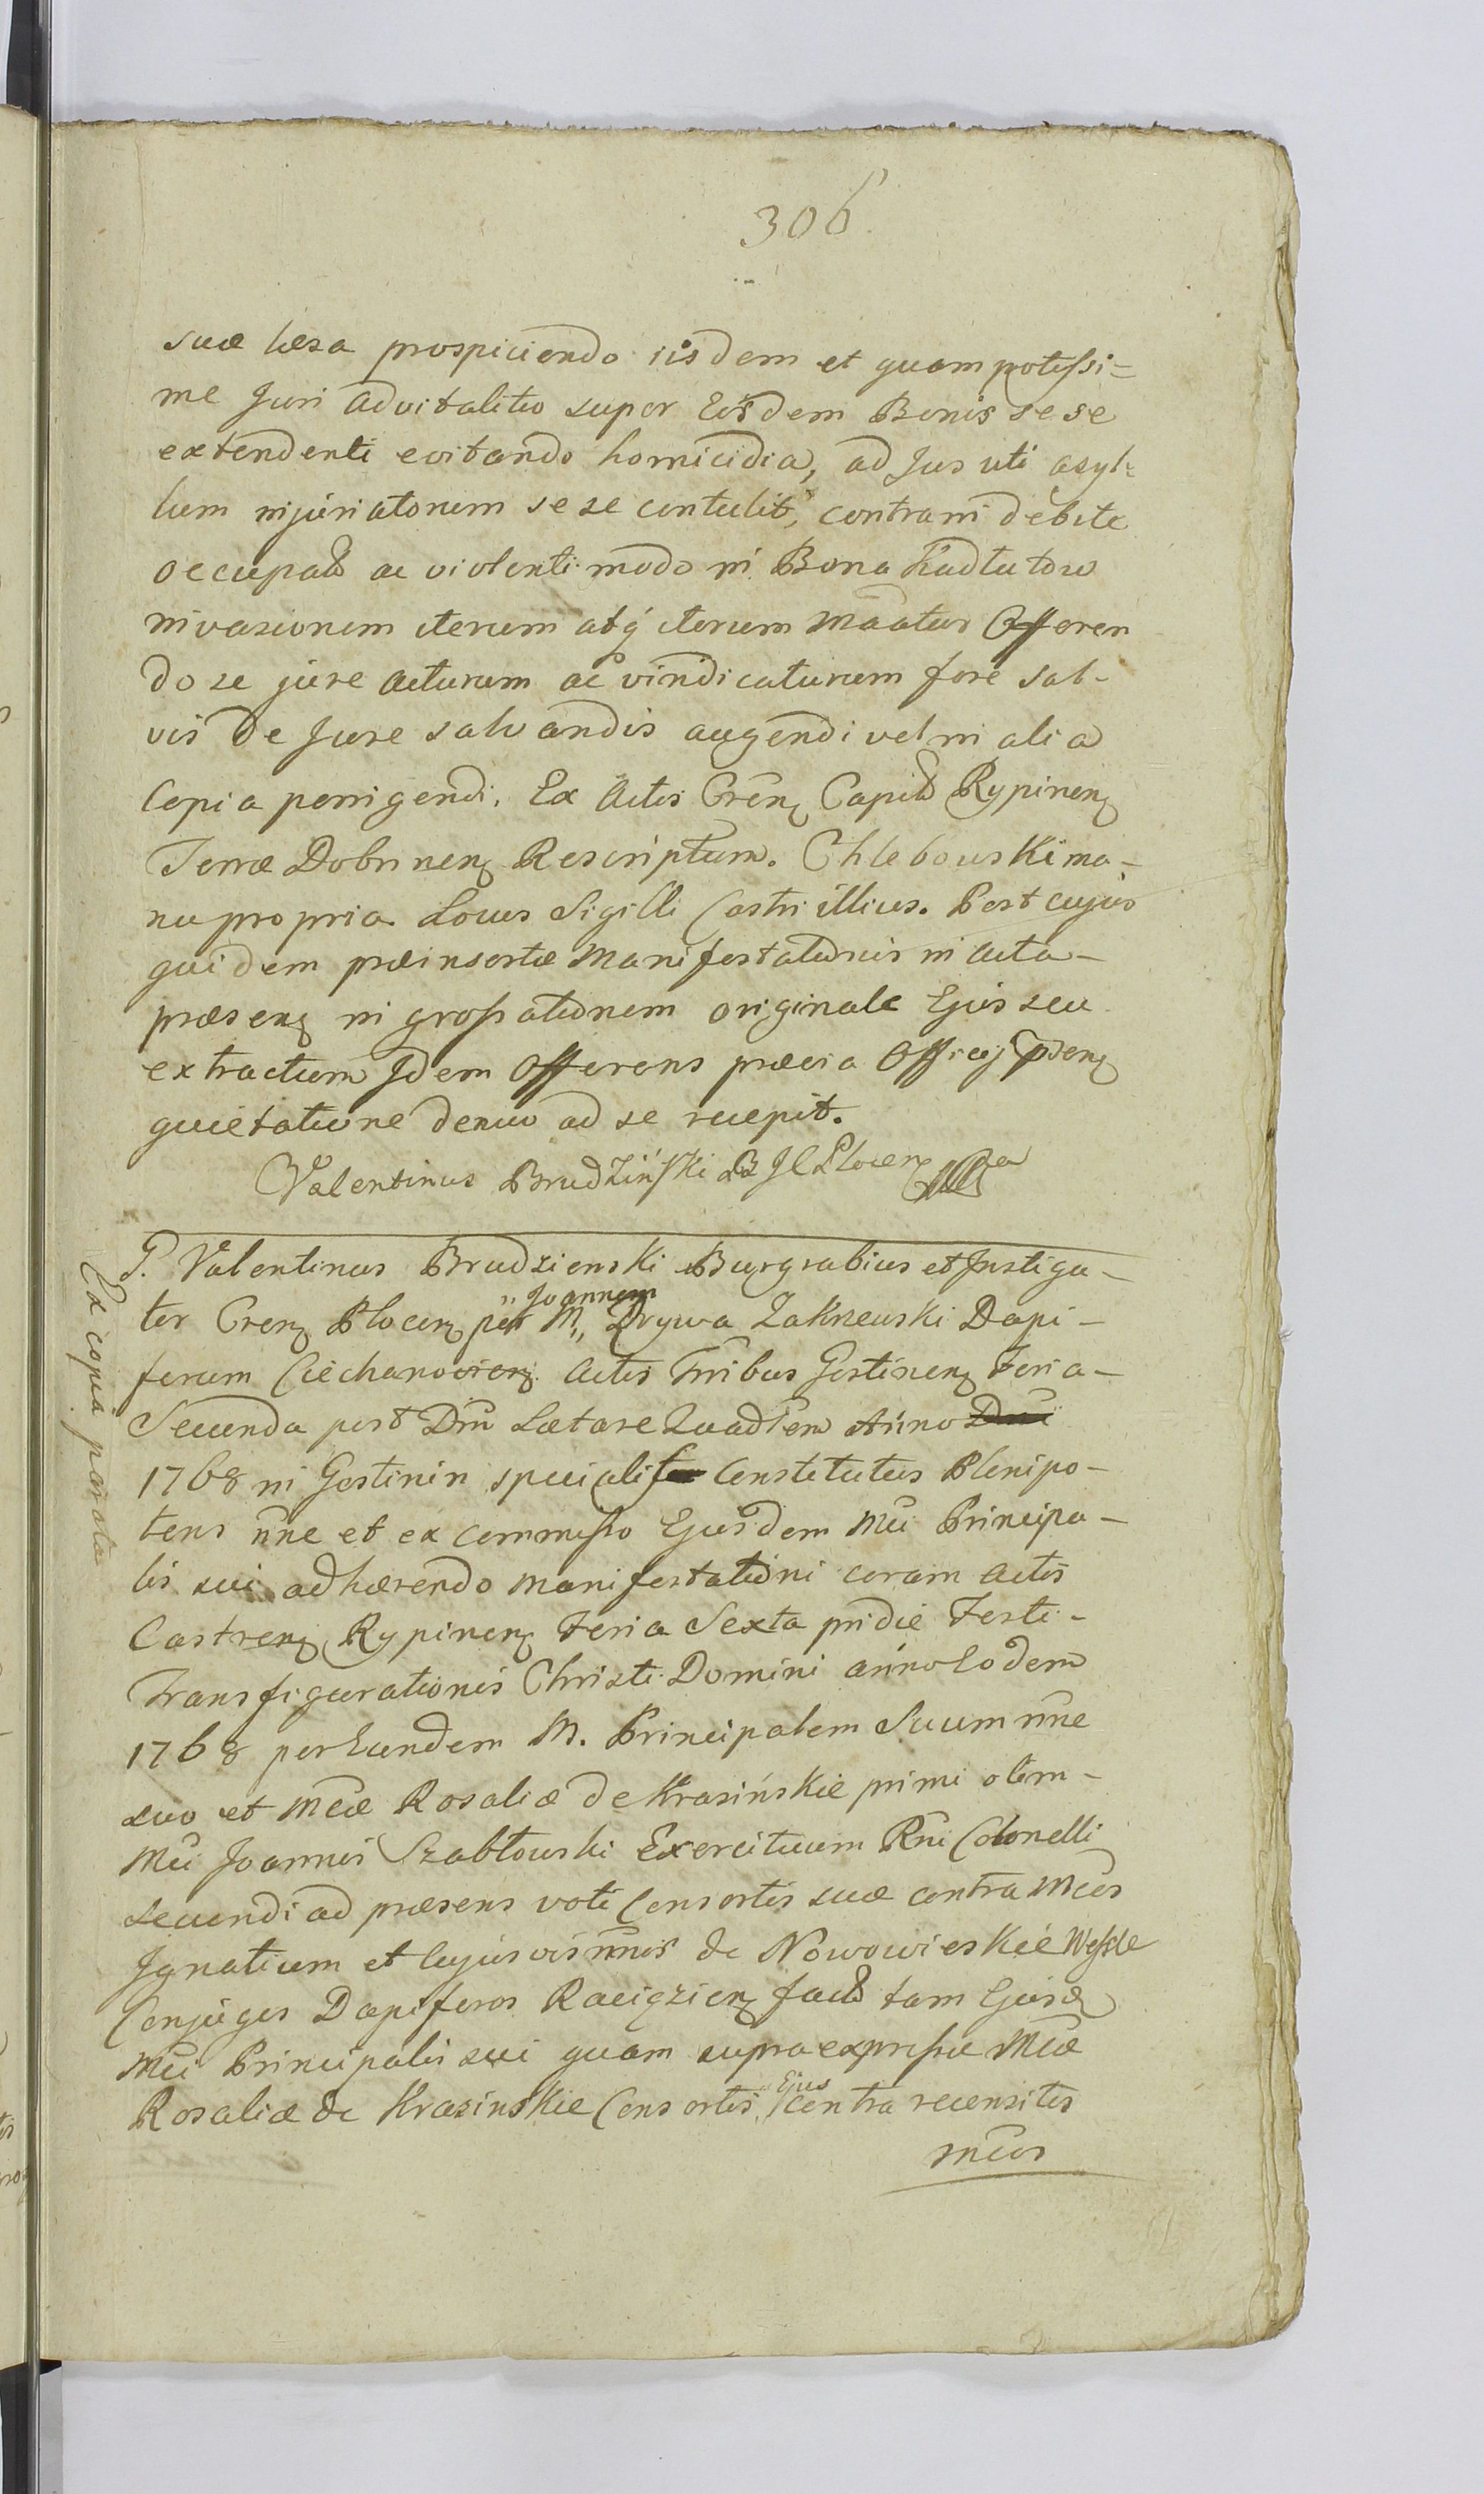 306
suæ læsa prospiciendo iisdem et quam potissi=
me Juri advitalitio super Eisdem Bonis sese
extendenti evitando homicidia, ad Jus uti asyl=
lum injuriatorum sese contulit, contra indebite
occupatō ac violenti modo in Bona Kadłutowo
invasionem iterum atq iterum māatur Offeren
do se jure acturum ac vindicaturum fore sal-
vis de Jure salvandis augendi vel in alia
Copia porrigendi. Ex Actis Crēn Capitī Rypinen
Terræ Dobrinen Rescriptum. Chlebowski ma-
nu propria. Locus Sigilli Castri illius. Post cujus
quidem præinsertæ Manifestationis in Acta-
præsen ingrossationem originale Ejus seu
extractum Idem Offerens prævia Officij pden
quietatione denuo ad se recepit.
Valentinus Brudziński B I C Plocen
G. Valentinus Brudzienski Burgrabius et Instiga-
tor Cren Plocen per M,, Drywa Zakrzewski Dapi-
,, Joannem
ferum Ciechanovien Actis Tribus Gostinen Feria-
Secunda post Dm̄ Lætare Quadlem Anno Dni
1768 in Gostinin specialiter Constitutus Plenipo-
tens nn̄e et ex commisso Ejusdem Mci Principa-
lis sui adhærendo manifestationi coram Actis
Castren Rypinen Feria Sexta pridie Festi-
Transfigurationis Christi Domini anno Eodem
1768 per Eundem M. Principalem Suum nn̄e
suo et Mcæ Rosaliæ de Krasińskie primi olim-
Mci Joannis Szabłowski Exercituum Rn̄i Colonelli
secundi ad præsens voti Consortis suæ contra Mcos
Ignatium et cujusvis nn̄is de Nowowieskie Wessle
Conjuges Dapiferos Raciązien factō tam Ejusd
Mci Principalis sui quam supra expressæ Mcæ
Rosaliæ de Krasinskie Consortis Ejus contra recensitos
Mcos
Ex copia parata